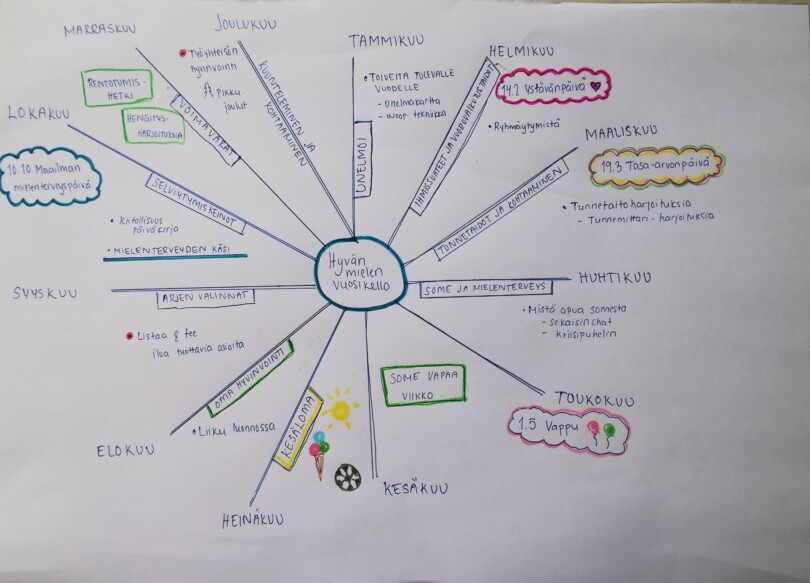 Hyvän
mielen
vuosikello
TAMMIKUU
UNELMOI
TOIVEITA TULEVALLE
VUODELLE
- unelmakartta
- woop-tekniikka
HELMIKUU
IHMISSUHTEET JA VUOROVAIKUTUSTAIDOT
14.2 Ystävänpäivä
• Ryhmäytymistä
MAALISKUU
TUNNETAIDOT JA KOHTAAMINEN
19.3 Tasa-arvonpäivä
• Tunnetaitoharjoituksia
- Tunnemittari-harjoituksia
HUHTIKUU
SOME JA MIELENTERVEYS
• Mistä apua somesta
- sekaisin chat
- kriisipuhelin
TOUKOKUU
1.5 Vappu
KESÄKUU
SOME VAPAA
VIIKKO
HEINÄKUU
KESÄLOMA
ELOKUU
OMA HYVINVOINTI
• Liiku luonnossa
SYYSKUU
ARJEN VALINNAT
• Listaa & tee
iloa tuottavia asioita
LOKAKUU
SELVIYTYMISKEINOT
10.10 Maailman
mielenterveyspäivä
• Kiitollisuus
päiväkirja
• MIELENTERVEYDEN KÄSI
MARRASKUU
VOIMAVARAT
RENTOUTUMIS-
HETKI
HENGITYS-
HARJOITUKSIA
JOULUKUU
KUUNTELEMINEN JA
KOHTAAMINEN
• Työyhteisön
hyvinvointi
pikku-
joulut